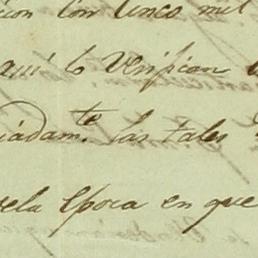 con cinco mil
aqui lo Verifican
iadam.te las tales
la Epoca en que